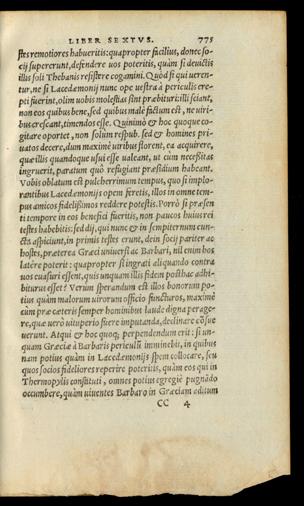 LIBER SEXTVS. 775
stes remotiores habueritis: quapropter facilius, donec so-
cij supererunt, defendere uos poteritis, quàm si deuictis
illis soli Thebanis resistere cogamini. Quòd si qui ueren-
tur, ne si Lacedæmonij nunc ope uestra à periculis ere-
pti fuerint, olim uobis molestias sint præbituri: illi sciant,
non eos quibus bene, sed quibus malè factum est, ne uiri-
bus crescant, timendos esse. Quinimò & hoc quoque co-
gitare oportet, non solùm respub. sed & homines pri-
uatos decere, dum maximè uiribus florent, ea acquirere,
quæ illis quandoque usui esse ualeant, ut cum necessitas
ingruerit, paratum quò refugiant præsidium habeant.
Vobis oblatum est pulcherrimum tempus, quo si implo-
rantibus Lacedæmonijs opem feretis, illos in omne tem-
pus amicos fidelissimos reddere potestis. Porrò si præsen
ti tempore in eos benefici fueritis, non paucos huius rei
testes habebitis: sed dij, qui nunc & in sempiternum cun-
cta aspiciunt, in primis testes erunt, dein socij pariter ac
hostes, præterea Græci uniuersi ac Barbari, nil enim hos
latêre poterit: quapropter si ingrati aliquando contra
uos euasuri essent, quis unquam illis fidem posthac adhi-
biturus esset? Verùm sperandum est illos bonorum po-
tius quàm malorum uirorum officio functuros, maximè
cùm præ cæteris semper hominibus laude digna perage-
re, quæ uerò uituperio fuere imputanda, declinare cōsue
uerunt. Atqui & hoc quoq; perpendendum erit: si un-
quam Græciæ à Barbaris periculū imminebit, in quibus
nam potius quàm in Lacedæmonijs spem collocare, seu
quos socios fideliores reperire poteritis, quàm eos qui in
Thermopylis constituti, omnes potius egregiè pugnādo
occumbere, quàm uiuentes Barbaro in Græciam aditum
CC 4